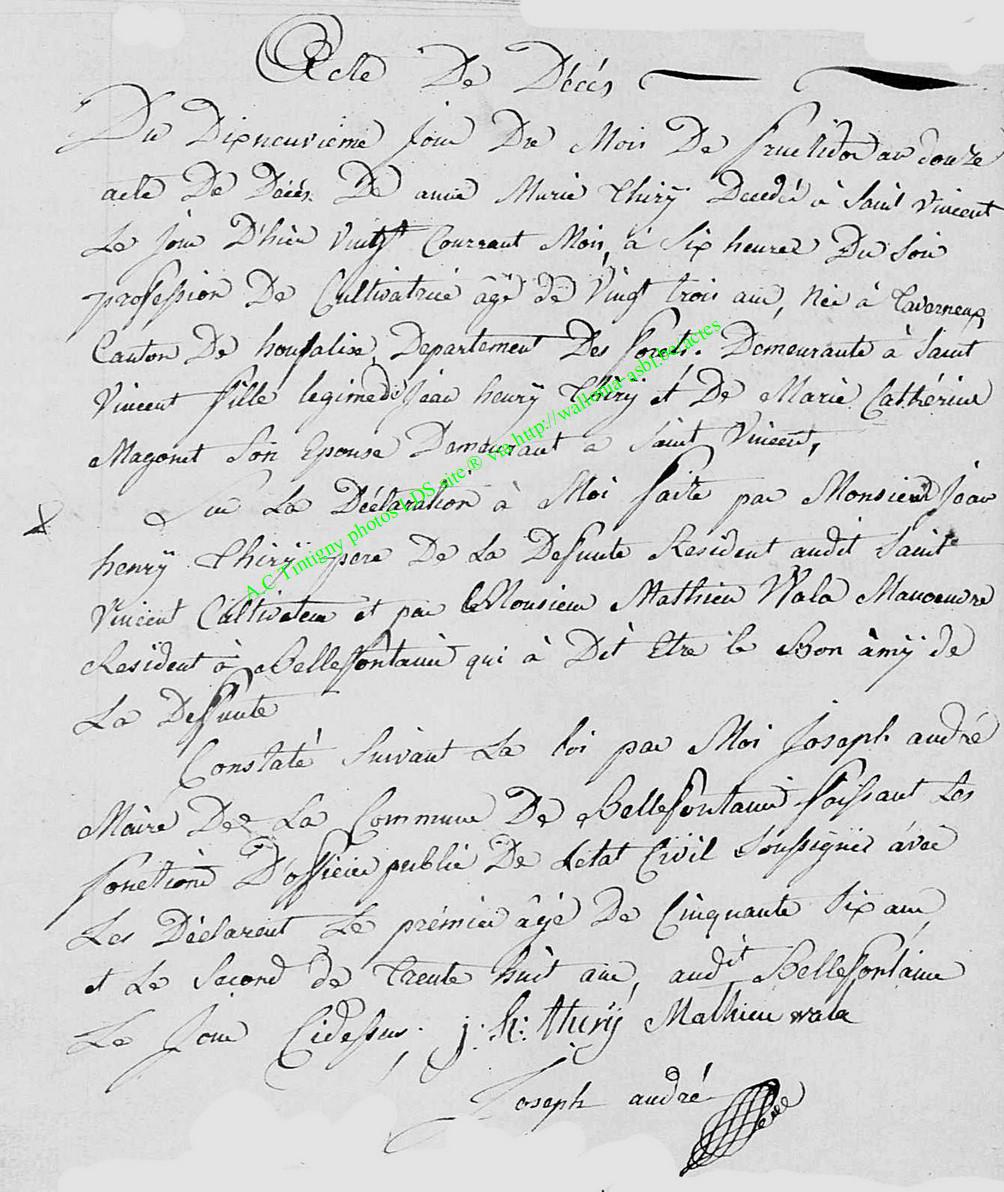 Acte De Décés
Du Dixneuvieme Jour Dre Mois De fructidor an douze
acte De Décés De anne Marie Thirÿ Decedé à Saint Vincent
Le jour D'hier Courrant Mois, à Six heures Du Soir
profession De Cultivatrice âgé de Vingt trois ans, Née à Taverneux,
Canton De houfalixe, Departement Des forets. Demeurante à Saint
Vincent fille legime de Jean henrÿ Thirÿ et De Marie Cathérine
Magonet Son Epouse Demeurant a Saint Vincent,
Sur La Déclaration à Moi faite par Monsieur Jean
henrÿ Thirÿ pere De La Defunte Resident audit Saint
Vincent Cultivateur et par le Monsieur Mathieu Wala Manoeuvre
Resident à Bellefontaine qui à Dit Etre le Bon àmÿ de
La Deffunte
Constaté Suivant La loi par Moi Joseph andré
Maire De La Commune De Bellefontaine faissant Les
fonctions D'officier public De Letat Civil Soussignés àvec
Les Déclarent Le prémier âgé De Cinquante Six ans,
et Le Second de trente huit ans, audit Bellefontaine
Le Jour Cidessus. j: h: thirÿ Mathieu wala
Joseph andré
A.C Tintigny photos LDS site ® via http://wallonia-asbl.be/actes